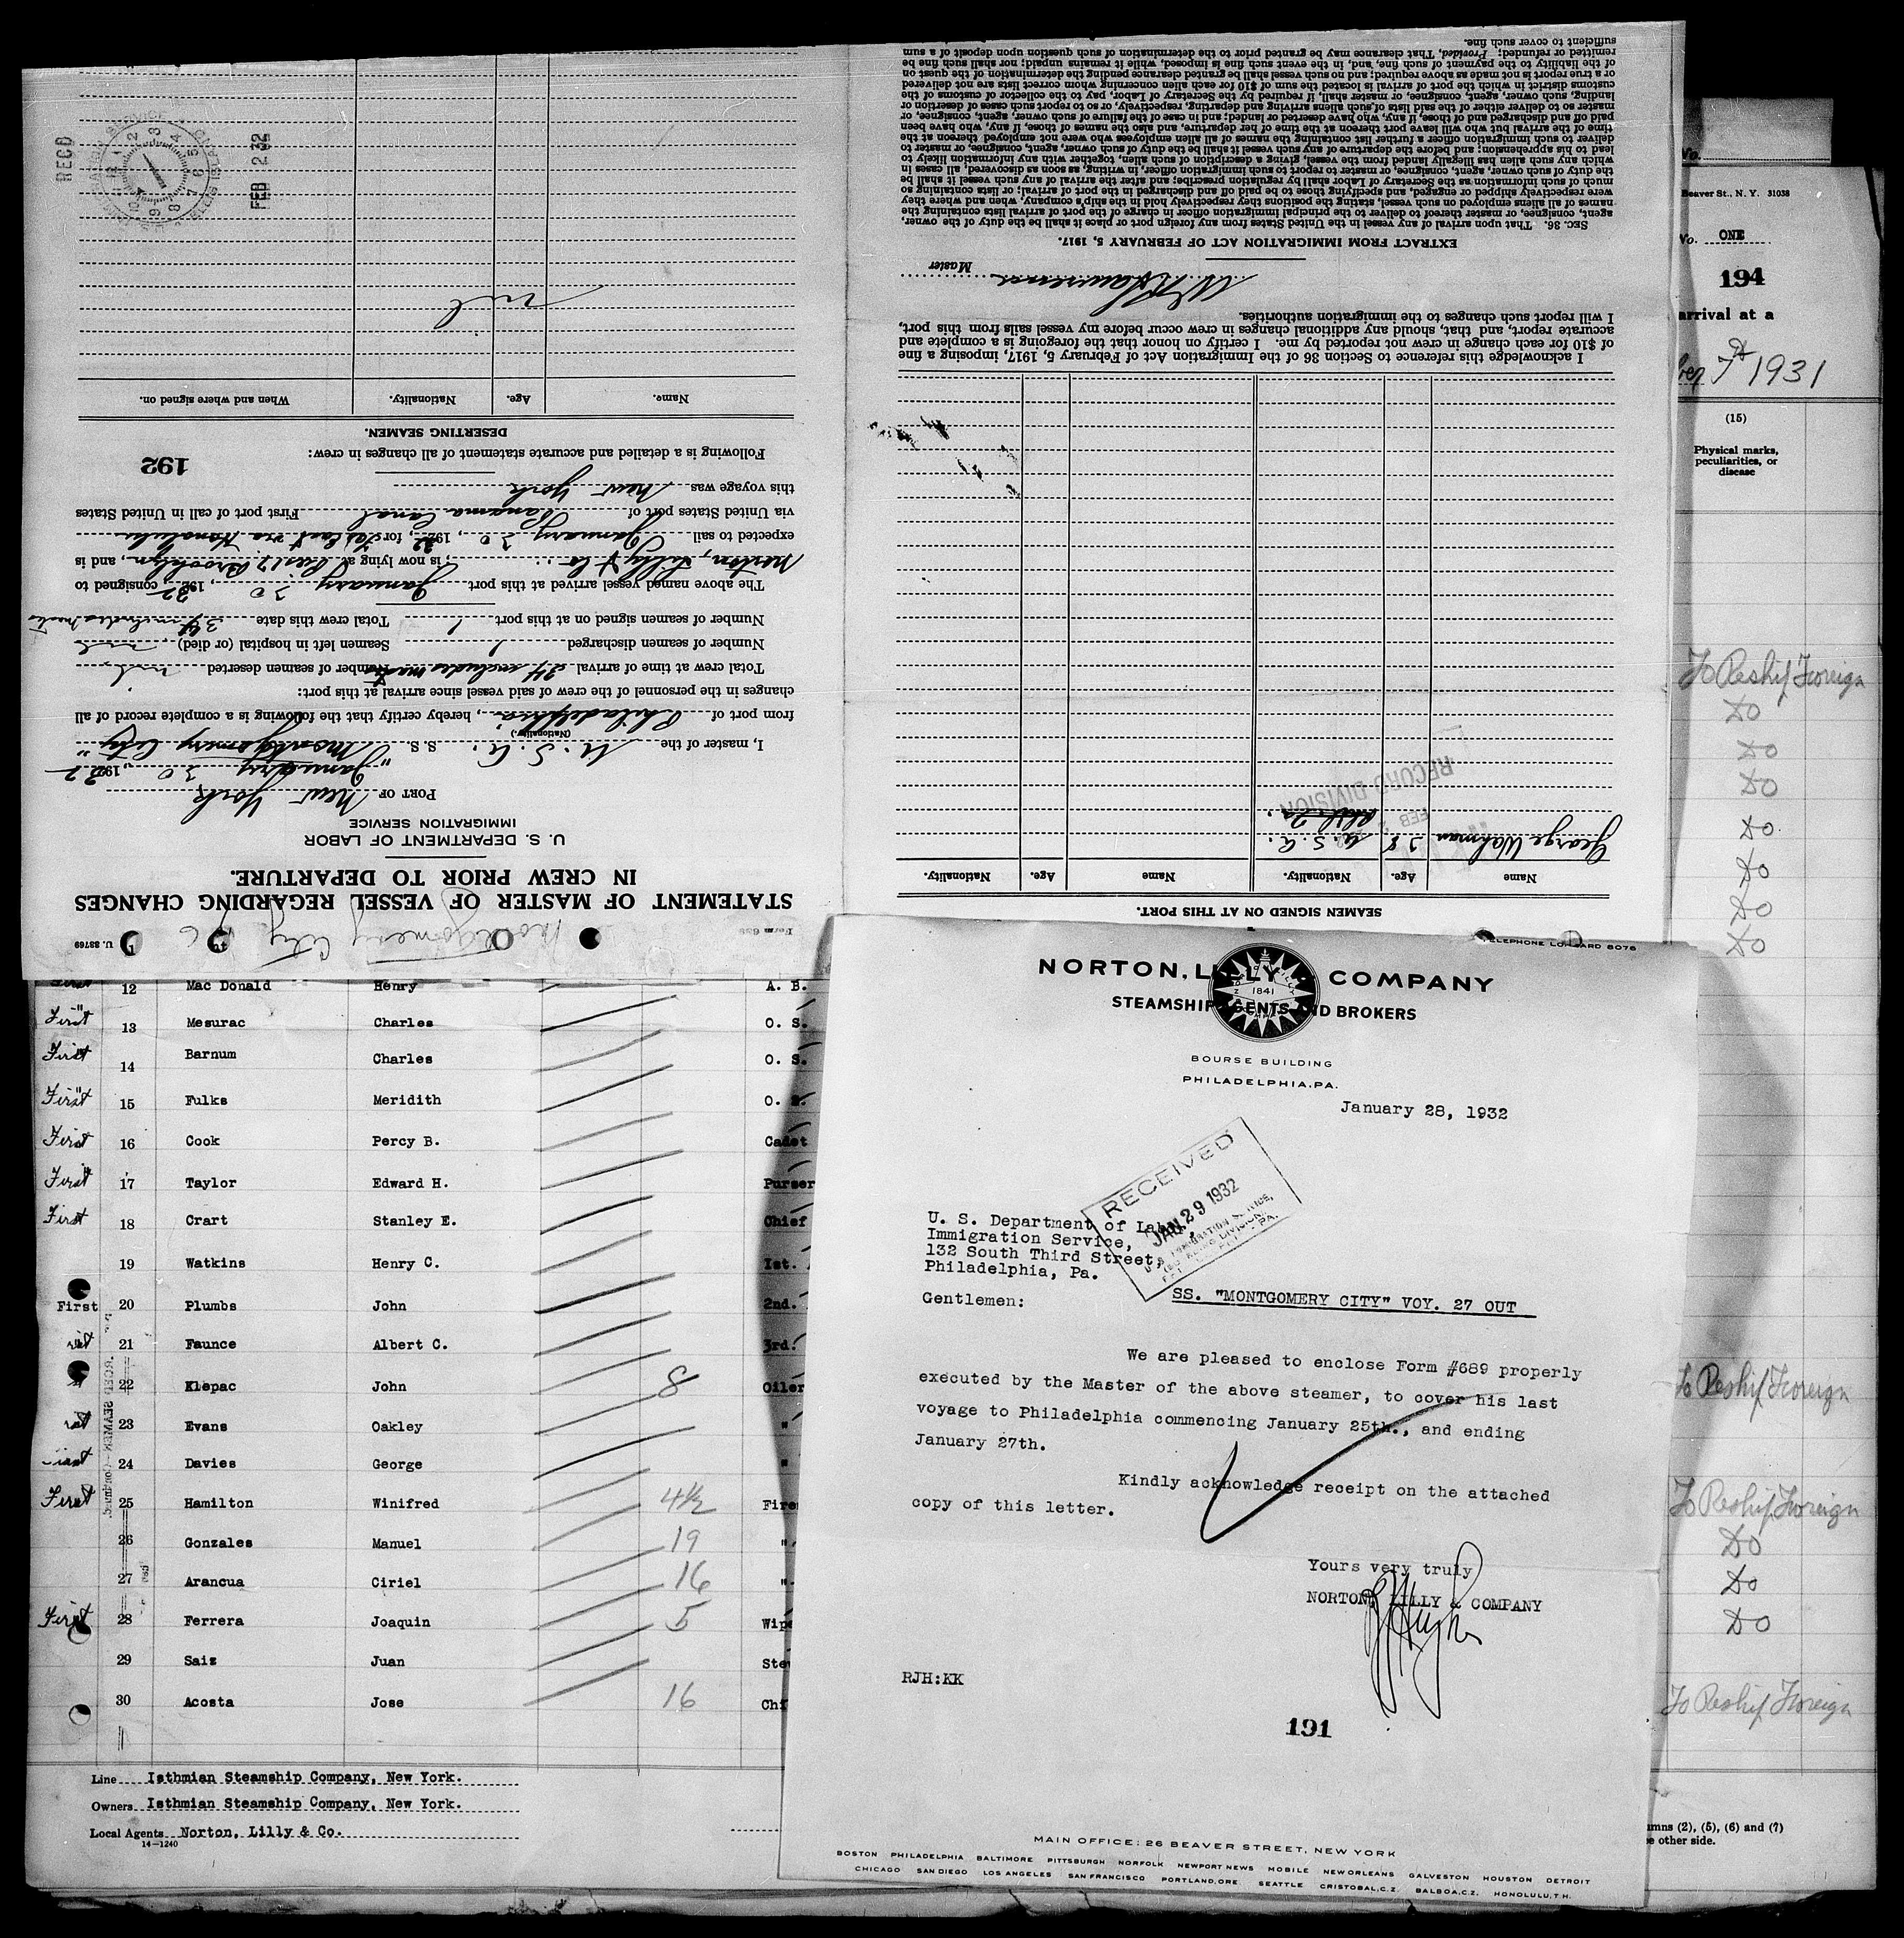 U. 88769
Form 689
Montgomery City
STATEMENT OF MASTER OF VESSEL REGARDING CHANGES
IN CREW PRIOR TO DEPARTURE.
U. S. DEPARTMENT OF LABOR
IMMIGRATION SERVICE
PORT OF New York
January 30, 1932
I, master of the U. S. A. S. S. "Montgomery City"
(Nationality)
from port of Philadelphia, hereby certify that the following is a complete record of all
changes in the personnel of the crew of said vessel since arrival at this port:
Total crew at time of arrival 34 includes master Number of seamen deserted nil
Number of seamen discharged 1 Seamen left in hospital (or died) nil
Number of seamen signed on at this port 1 Total crew this date 34 includes master
The above named vessel arrived at this port January 30, 1932, consigned to
Norton, Lilly & Co., is now lying at Pier 17 Brooklyn, and is
expected to sail January 30, 1932, for Far East via Honolulu
via United States port of Panama Canal First port of call in United States
this voyage was New York
Following is a detailed and accurate statement of all changes in crew:
192
DESERTING SEAMEN.
Name. Age. Nationality. When and where signed on.
nil
RECD
FEB 2 32
SEAMEN SIGNED ON AT THIS PORT.
Name Age. Nationality. Name Age. Nationality.
George Wahman 28 U. S. A.
RECORD DIVISION
FEB 2
I acknowledge this reference to Section 36 of the Immigration Act of February 5, 1917, imposing a fine
of $10 for each change in crew not reported by me. I certify on honor that the foregoing is a complete and
accurate report, and that, should any additional changes in crew occur before my vessel sails from this port,
I will report such changes to the immigration authorities.
Master
EXTRACT FROM IMMIGRATION ACT OF FEBRUARY 5, 1917.
SEC. 36. That upon arrival of any vessel in the United States from any foreign port or place it shall be the duty of the owner,
agent, consignee, or master thereof to deliver to the principal immigration officer in charge of the port of arrival lists containing the
names of all aliens employed on such vessel, stating the positions they respectively hold in the ship's company, when and where they
were respectively shipped or engaged, and specifying those to be paid off and discharged in the port of arrival; or lists containing so
much of such information as the Secretary of Labor shall by regulation prescribe; and after the arrival of any such vessel it shall be
the duty of such owner, agent, consignee, or master to report to such immigration officer, in writing, as soon as discovered, all cases in
which any such alien has illegally landed from the vessel, giving a description of such alien, together with any information likely to
lead to his apprehension; and before the departure of any such vessel it shall be the duty of such owner, agent, consignee, or master to
deliver to such immigration officer a further list containing the names of all alien employees who were not employed thereon at the
time of the arrival but who will leave port thereon at the time of her departure, and also the names of those, if any, who have been
paid off and discharged and of those, if any, who have deserted or landed; and in case of the failure of such owner, agent, consignee, or
master so to deliver either of the said lists of such aliens arriving and departing, respectively, or so to report such cases of desertion or
landing, such owner, agent, consignee, or master, shall, if required by the Secretary of Labor, pay to the collector of customs of the
customs district in which the port of arrival is located the sum of $10 for each alien concerning whom correct lists are not delivered
or a true report is not made as above required; and no such vessel shall be granted clearance pending the determination of the quest on
of the liability to the payment of such fine, and, in the event such fine is imposed, while it remains unpaid; nor shall such fine be
remitted or refunded; Provided, That clearance may be granted prior to the determination of such question upon deposit of a sum
sufficient to cover such fine.
No.
Beaver St., N. Y. 31038
No. ONE
194
arrival at a
ber 7th 1931
(15)
Physical marks,
peculiarities, or
disease
To Reship Foreign
Do
Do
Do
Do
Do
Do
Do
To Reship Foreign
To Reship Foreign
Do
Do
Do
To Reship Foreign
umns (2), (5), (6) and (7)
e other side.
First 12 Mac Donald Henry A. B.
First 13 Mesurac Charles O. S.
First 14 Barnum Charles O. S.
First 15 Fulks Meridith O. S.
First 16 Cook Percy B. Cadet
First 17 Taylor Edward H. Purser
First 18 Crart Stanley E. Chief
19 Watkins Henry C. 1st.
First 20 Plumbs John 2nd.
21 Faunce Albert C. 3rd.
22 Klepac John 8 Oiler
23 Evans Oakley "
24 Davies George "
First 25 Hamilton Winifred 4½ Fire
26 Gonzales Manuel 19 "
27 Arancua Ciriel 16 "
First 28 Ferrera Joaquin 5 Wipe
29 Saiz Juan Ste
30 Acosta Jose 16 Chi
Line Isthmian Steamship Company, New York.
Owners Isthmian Steamship Company, New York.
Local Agents Norton, Lilly & Co.
14-1240
TELEPHONE LOMBARD 6076
NORTON, LILLY & COMPANY
1841
STEAMSHIP AGENTS AND BROKERS
BOURSE BUILDING
PHILADELPHIA, PA.
January 28, 1932
RECEIVED
JAN 29 1932
U. S. Department of Labor
Immigration Service,
132 South Third Street,
Philadelphia, Pa.
Gentlemen: SS. "MONTGOMERY CITY" VOY. 27 OUT
We are pleased to enclose Form #689 properly
executed by the Master of the above steamer, to cover his last
voyage to Philadelphia commencing January 25th., and ending
January 27th.
Kindly acknowledge receipt on the attached
copy of this letter.
Yours very truly
NORTON, LILLY & COMPANY
RJH:KK
191
MAIN OFFICE: 26 BEAVER STREET, NEW YORK
BOSTON PHILADELPHIA BALTIMORE PITTSBURGH NORFOLK NEWPORT NEWS MOBILE NEW ORLEANS GALVESTON HOUSTON DETROIT
CHICAGO SAN DIEGO LOS ANGELES SAN FRANCISCO PORTLAND, ORE SEATTLE CRISTOBAL, C.Z. BALBOA, C.Z. HONOLULU, T.H.